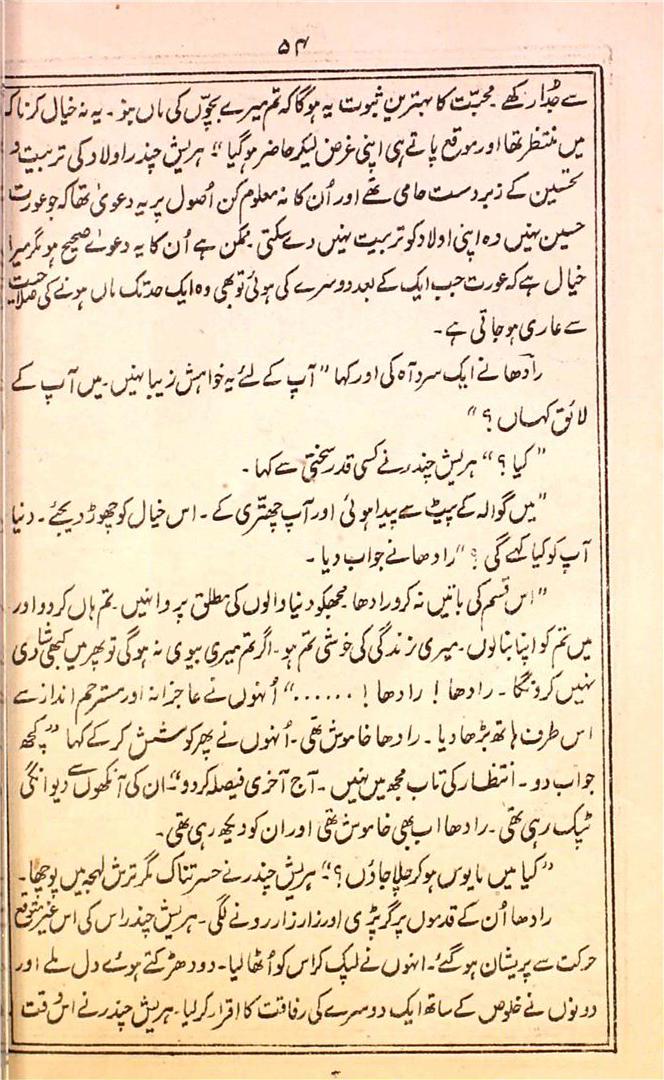 ۵۴
سے جُدا رکھے محبّت کا بہترین ثبوت یہ ہوگا کہ تم میرے بچوّں کی ماں بنو۔ یہ نہ خیال کرنا کہ
میں منتظر تھا اور موقع پاتے ہی اپنی غرض لیکر حاضر ہوگیا“ ہریش چندر اولاد کی تربیت و
تحسین کے زبردست حامی تھے اور اُن کا نہ معلوم کن اُصول پر یہ دعویٰ تھا کہ جو عورت
حسین نہیں وہ اپنی اولاد کو تربیت نہیں دے سکتی ممکن ہے اُن کا یہ دعوےٰ صحیح ہو مگر میرا
خیال ہے کہ عورت جب ایک کے بعد دوسرے کی ہوئی تو بھی وہ ایک حد تک ماں ہونے کی صلاحیت
سے عاری ہو جاتی ہے۔
رادھا نے ایک سرد آہ کی اور کہا ”آپ کے لئے یہ خواہش زیبا نہیں۔ میں آپ کے
لائق کہاں؟“
”کیا؟“ ہریش چندر نے کسی قدر سختی سے کہا۔
”میں گوالہ کے پیٹ سے پیدا ہوئی اور آپ چھتّری کے۔ اس خیال کو چھوڑ دیجئے۔ دنیا
آپ کو کیا کہے گی؟“ رادھا نے جواب دیا۔
”اس قسم کی باتیں نہ کرو رادھا مجھکو دنیا والوں کی مطلق پروا نہیں۔ تم ہاں کردو اور
میں تم کو اپنا بنالوں۔ میری زندگی کی خوشی تم ہو۔ اگر تم میری بیوی نہ ہوگی تو پھر میں کبھی شادی
نہیں کرونگا۔ رادھا! رادھا! ......“ اُنہوں نے عاجزانہ اور مسترحم انداز سے
اس طرف ہاتھ بڑھا دیا۔ رادھا خاموش تھی۔ اُنہوں نے پھر کوشش کرکے کہا ”کچھ
جواب دو۔ انتظار کی تاب مجھ میں نہیں۔ آج آخری فیصلہ کردو“ ان کی آنکھوں سے دیوانگی
ٹپک رہی تھی۔ رادھا اب بھی خاموش تھی اور ان کو دیکھ رہی تھی۔
”کیا میں مایوس ہو کر چلا جاؤں؟“ ہریش چندر نے حسرتناک مگر ترش لہجہ میں پوچھا۔
رادھا اُن کے قدموں پر گر پڑی اور زار زار رونے لگی۔ ہریش چندر اس کی اس غیر متوقع
حرکت سے پریشان ہوگئے۔ انہوں نے لپک کر اس کو اُٹھا لیا۔ دو دھڑکتے ہوئے دل ملے اور
دونوں نے خلوص کے ساتھ ایک دوسرے کی رفاقت کا اقرار کرلیا۔ ہریش چندر نے اس وقت